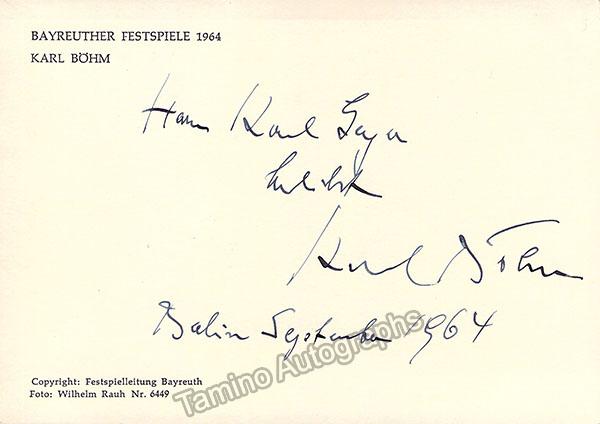 BAYREUTHER FESTSPIELE 1964
KARL BÖHM
Herrn Karl
Karl Böhm
Berlin September 1964
Copyright: Festspielleitung Bayreuth
Foto: Wilhelm Rauh Nr. 6449
Tamino Autographs